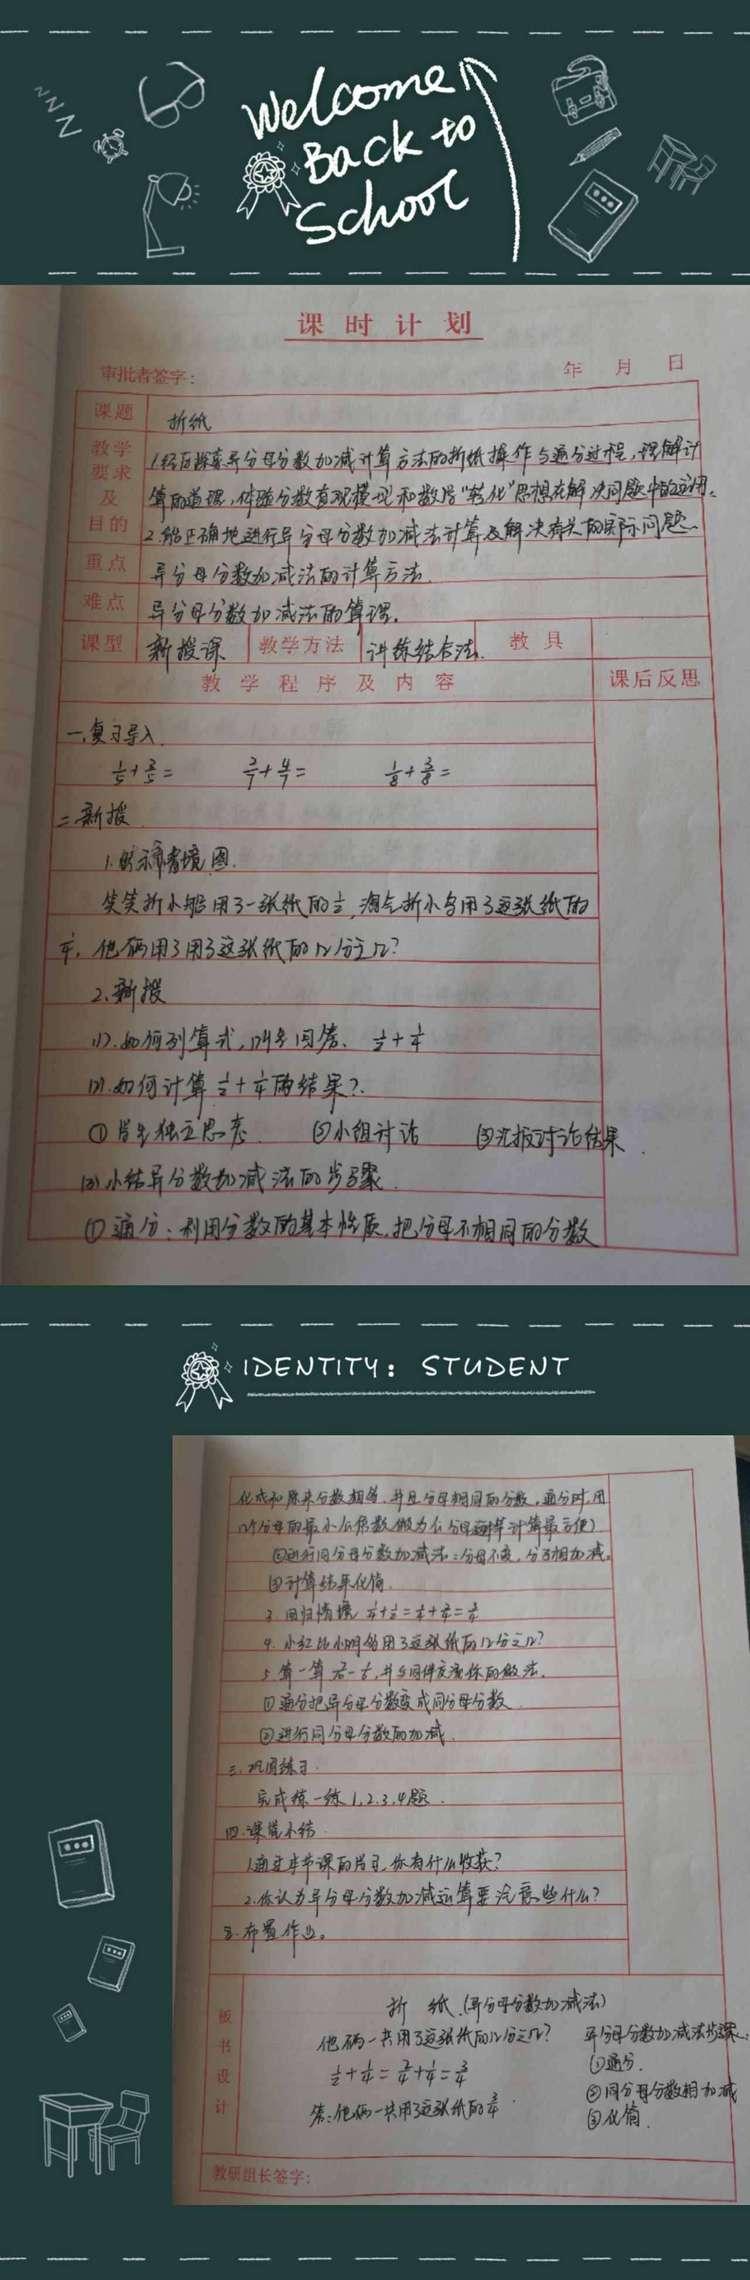 Welcome
Back to
School
课时计划
审批者签字： 年 月 日
课题 折纸
教学要求及目的
1.经历探索异分母分数加减计算方法的折纸操作与通分过程，理解计
算的道理，体验分数直观模型和数学“转化”思想在解决问题中的应用。
2.能正确地进行异分母分数加减法计算及解决有关的实际问题。
重点 异分母分数加减法的计算方法.
难点 异分母分数加减法的算理。
课型 新授课 教学方法 讲练结合法. 教具
教学程序及内容 课后反思
一.复习导入.
1/5+3/5= 3/7+4/7= 1/8+3/8=
二新授
1.展示情境图.
笑笑折小船用了一张纸的1/2，淘气折小鸟用了这张纸的
1/4，他俩用了用了这张纸的几分之几？
2.新授
(1).如何列算式，以生回答. 1/2+1/4
(2).如何计算1/2+1/4的结果？.
①学生独立思考. ②小组讨论 ③汇报讨论结果.
(3)小结异分数加减法的步骤.
①通分：利用分数的基本性质，把分母不相同的分数
IDENTITY: STUDENT
化成和原来分数相等，并且分母相同的分数，通分时，用
几个分母的最小公倍数做为公分母这样计算最方便）
②进行同分母分数加减法：分母不变，分子相加减。
③计算结果化简
3.回归情境 1/4+1/2=1/4+2/4=3/4
4.小红比小明多用了这张纸的几分之几？
5.算一算 并与同伴交流你的做法.
①通分把异分母分数变成同分母分数
②进行同分母分数的加减.
三.巩固练习.
完成练一练1.2.3.4题.
四.课堂小结
1.通过本节课的学习，你有什么收获？
2.你认为异分母分数加减运算要注意些什么？
五.布置作业。
板书设计
折纸（异分母分数加减法）
他俩一共用了这张纸的几分之几？
1/2+1/4=2/4+1/4=3/4
答：他俩一共用了这张纸的3/4.
异分母分数加减法步骤：
①通分.
②同分母分数相加减
③化简.
教研组长签字：